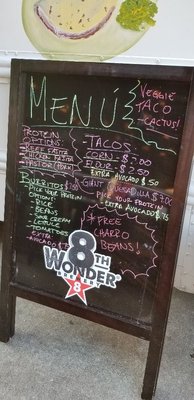 MENÚ
VEGGIE
TACO
-CACTUS!
PROTEIN
OPTIONS:
BEEF FAJITA
CHICKEN FAJITA
PASTOR (PORK)
-TACOS-
CORN-
FLOUR-
EXTRA AVOCADO $.50
GIANT QUESADILLA $
PICK YOUR PROTEIN
EXTRA AVOCADO $
BURRITOS $
PICK YOUR PROTEIN
OPTIONS:
- RICE
- BEANS
- SOUR CREAM
- LETTUCE
- TOMATOES
EXTRA:
AVOCADO
*FREE
CHARRO
BEANS!
8TH
WONDER
BREWERY
8